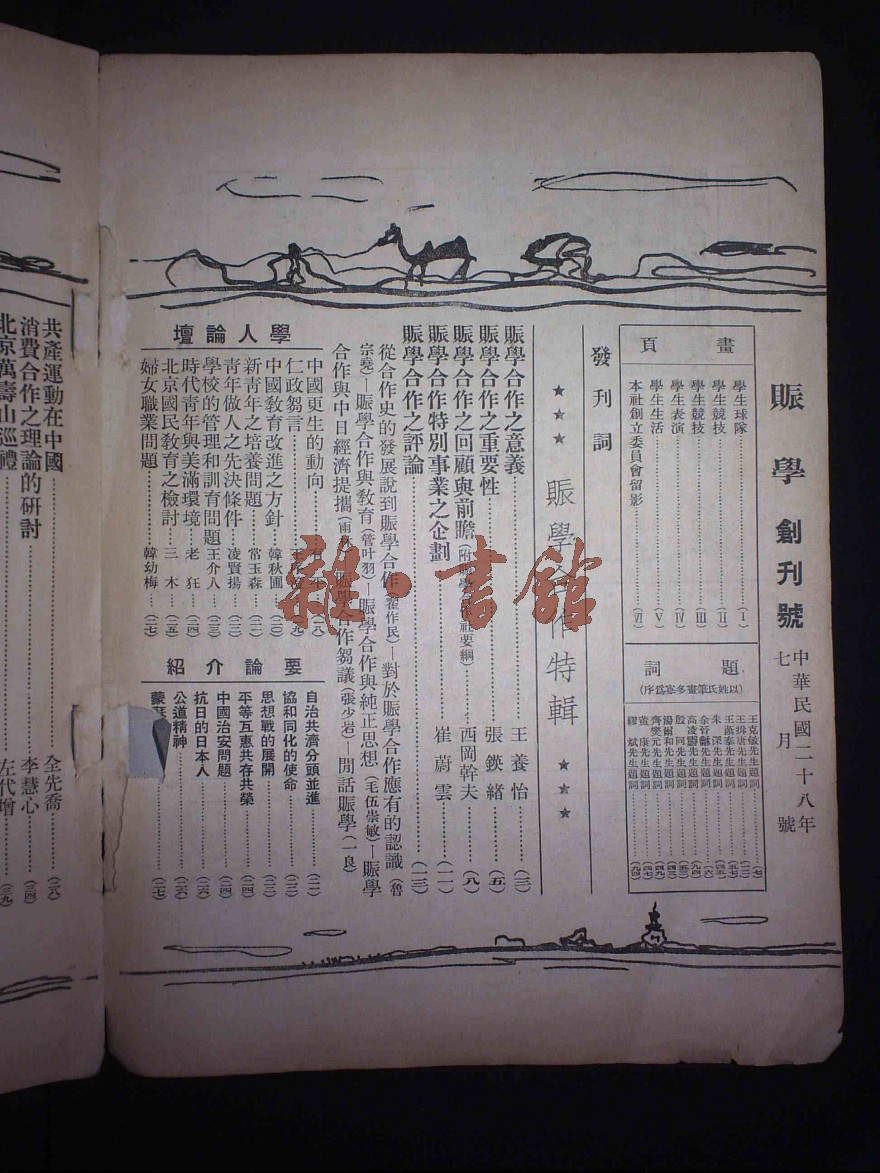 賑學創刊號
中華民國二十八年
七月號
畫頁
學生球隊……(I)
學生競技……(II)
學生競技……(III)
學生表演……(IV)
學生生活……(V)
本社創立委員會留影……(VI)
題詞
(以姓氏筆畫多寡爲序)
王克敏先生題詞
王揖唐先生題詞
王蔭泰先生題詞
朱深先生題詞
余晉龢先生題詞
高凌霨先生題詞
殷同先生題詞
湯爾和先生題詞
齊燮元先生題詞
董康先生題詞
繆斌先生題詞
發刊詞
★★★ 賑學合作特輯 ★★★
賑學合作之意義……王養怡……(三)
賑學合作之重要性……張鍈緒……(五)
賑學合作之回顧與前瞻……西岡幹夫……(八)
賑學合作特別事業之企劃……崔蔚雲……(一一)
賑學合作之評論……(一三)
從合作史的發展說到賑學合作(翟作民)—對於賑學合作應有的認識(魯
宗堯)—賑學合作與敎育(管叶羽)—賑學合作與純正思想(毛伍崇敏)—賑學
合作與中日經濟提攜 賑學合作芻議(張少岩)—閒話賑學(一良)
學人論壇
中國更生的動向……(一八)
仁政芻言……(一九)
中國敎育改進之方針……韓秋圃……(二〇)
新靑年之培養問題……常玉森……(二一)
靑年做人之先決條件……凌賢揚……(二三)
學校的管理和訓育問題……王介人……(二三)
時代靑年與美滿環境……老狂……(二四)
北京國民敎育之檢討……三木……(二五)
婦女職業問題……韓幼梅……(二七)
要論介紹
自治共濟分頭並進……(二)
協和同化的使命……(一二)
思想戰的展開……(一三)
平等互惠共存共榮……(一四)
中國治安問題……(二四)
抗日的日本人……(二六)
公道精神……(二六)
蒙……(二七)
共產運動在中國……全先喬……(二八)
消費合作之理論的研討……李慧心……(三四)
北京萬壽山巡禮……左代增……(三九)
雜·書館